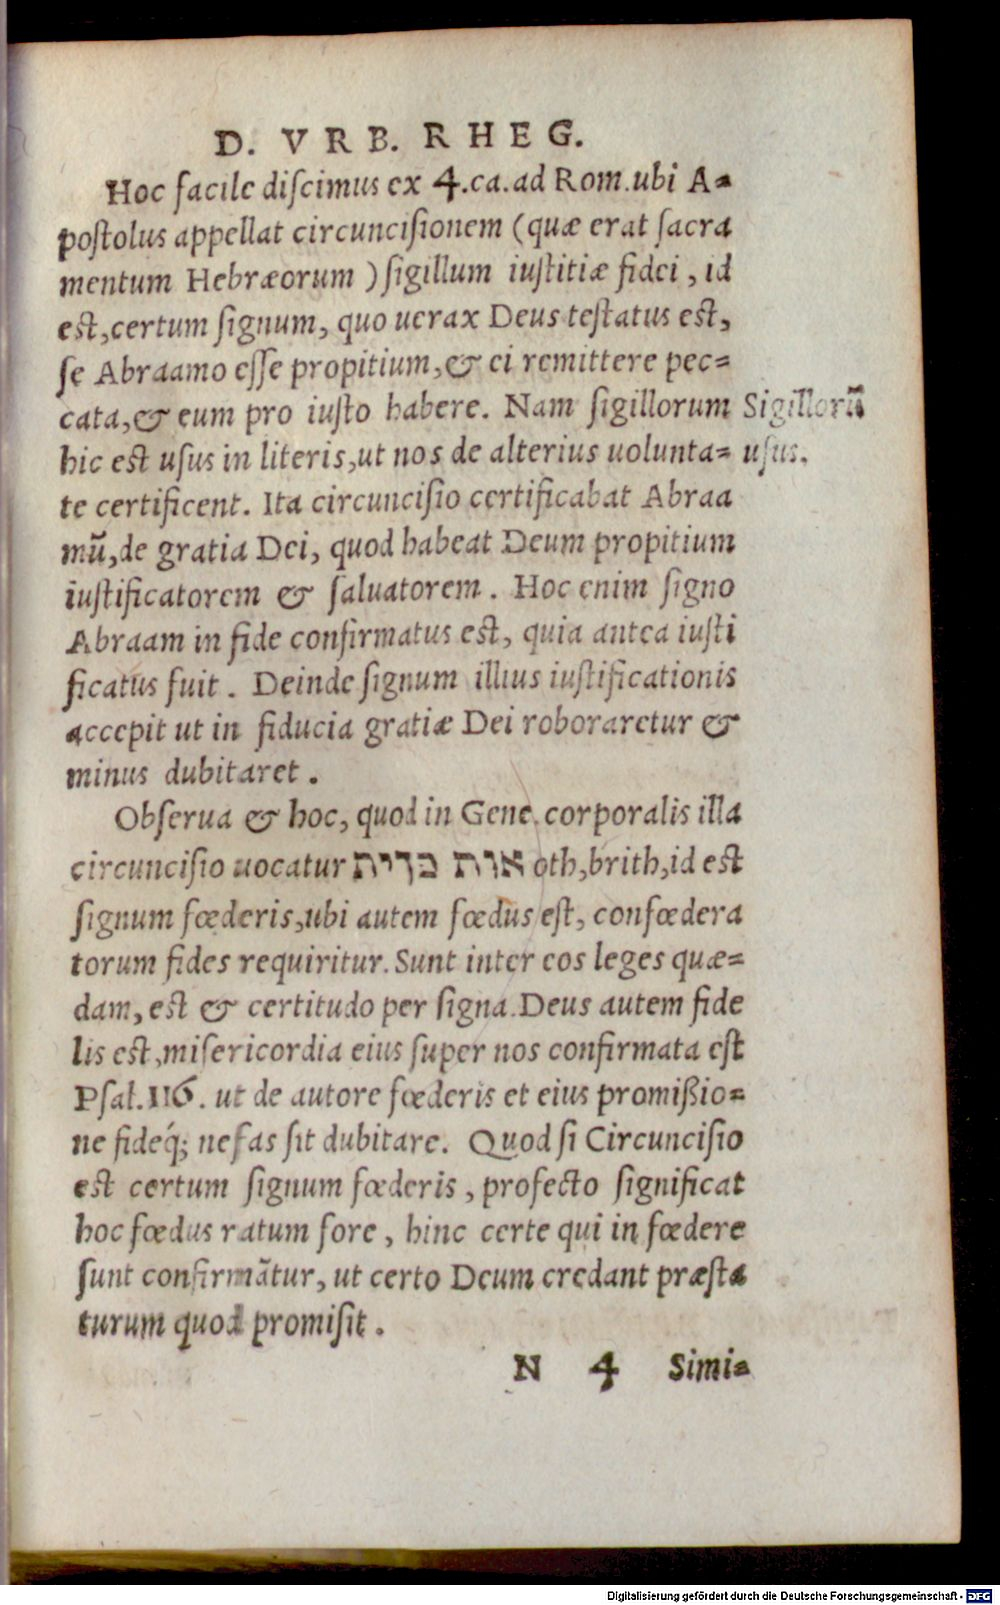 D. VRB. RHEG.
Hoc facile discimus ex 4.ca.ad Rom.ubi A=
postolus appellat circuncisionem (quæ erat sacra
mentum Hebræorum ) sigillum iustitiæ fidei , id
est,certum signum, quo uerax Deus testatus est,
se Abraamo esse propitium,& ei remittere pec=
cata,& eum pro iusto habere. Nam sigillorum
Sigillorũ
hic est usus in literis,ut nos de alterius uolunta=
usus.
te certificent. Ita circuncisio certificabat Abraa
mũ,de gratia Dei, quod habeat Deum propitium
iustificatorem & saluatorem . Hoc enim signo
Abraam in fide confirmatus est, quia antea iusti
ficatus fuit . Deinde signum illius iustificationis
accepit ut in fiducia gratiæ Dei roboraretur &
minus dubitaret .
Obserua & hoc, quod in Gene.corporalis illa
circuncisio uocatur אות ברית oth,brith,id est
signum fœderis,ubi autem fœdus est, confœdera
torum fides requiritur. Sunt inter eos leges quæ=
dam, est & certitudo per signa.Deus autem fide
lis est,misericordia eius super nos confirmata est
Psal.116. ut de autore fœderis et eius promißio=
ne fideq́; nefas sit dubitare. Quod si Circuncisio
est certum signum fœderis , profecto significat
hoc fœdus ratum fore , hinc certe qui in fœdere
sunt confirmãtur, ut certo Deum credant præsta
turum quod promisit .
N 4 Simi=
Digitalisierung gefördert durch die Deutsche Forschungsgemeinschaft - DFG